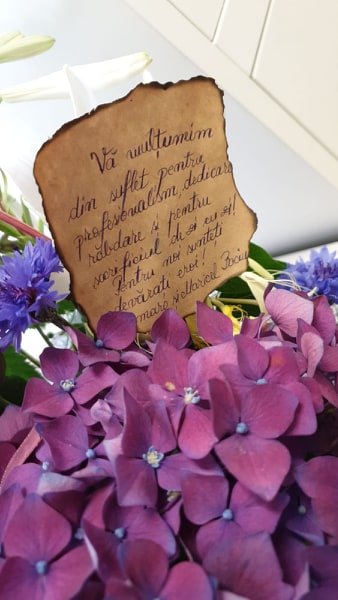 Vă mulțumim
din suflet pentru
profesionalism, dedicare
răbdare și pentru
sacrificiul de zi cu zi!
Pentru noi sunteți
devărați eroi!
și Maricel